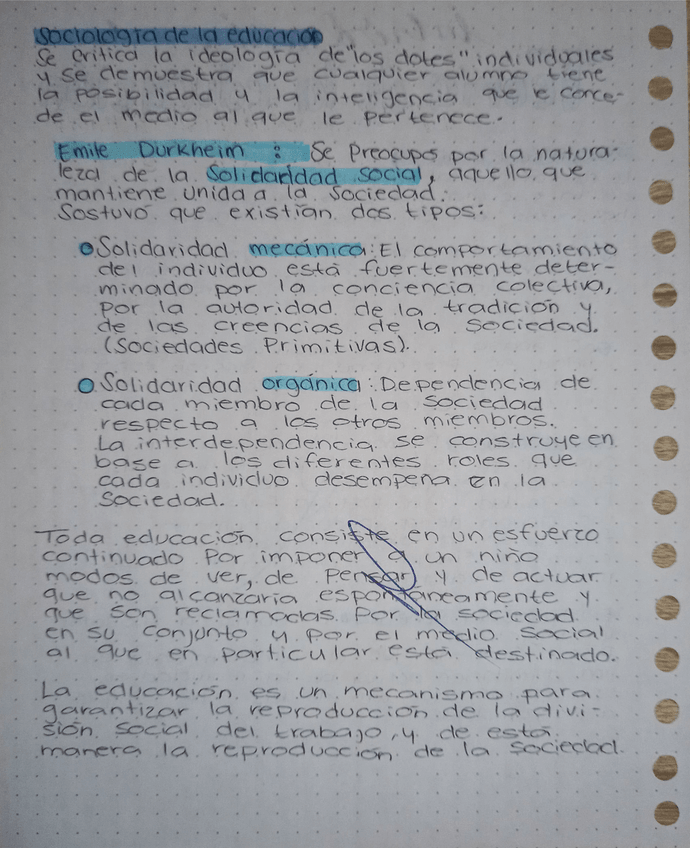 Sociología de la educación
Se critica la ideología de "los dotes" individuales
y se demuestra que cualquier alumno tiene
la posibilidad y la inteligencia que le conce-
de el medio al que le pertenece.
Emile Durkheim : Se preocupó por la natura-
leza de la solidaridad social, aquello que
mantiene unida a la sociedad.
Sostuvo que existían dos tipos:
Solidaridad mecánica: El comportamiento
del individuo está fuertemente deter-
minado por la conciencia colectiva,
por la autoridad de la tradición y
de las creencias de la sociedad.
(Sociedades Primitivas).
Solidaridad orgánica: Dependencia de
cada miembro de la sociedad
respecto a los otros miembros.
La interdependencia se construye en
base a los diferentes roles que
cada individuo desempeña en la
sociedad.
Toda educación consiste en un esfuerzo
continuado por imponer a un niño
modos de ver, de pensar y de actuar
que no alcanzaría espontáneamente y
que son reclamadas por la sociedad
en su conjunto y por el medio social
al que en particular está destinado.
La educación es un mecanismo para
garantizar la reproducción de la divi-
sión social del trabajo, y de esta
manera la reproducción de la sociedad.